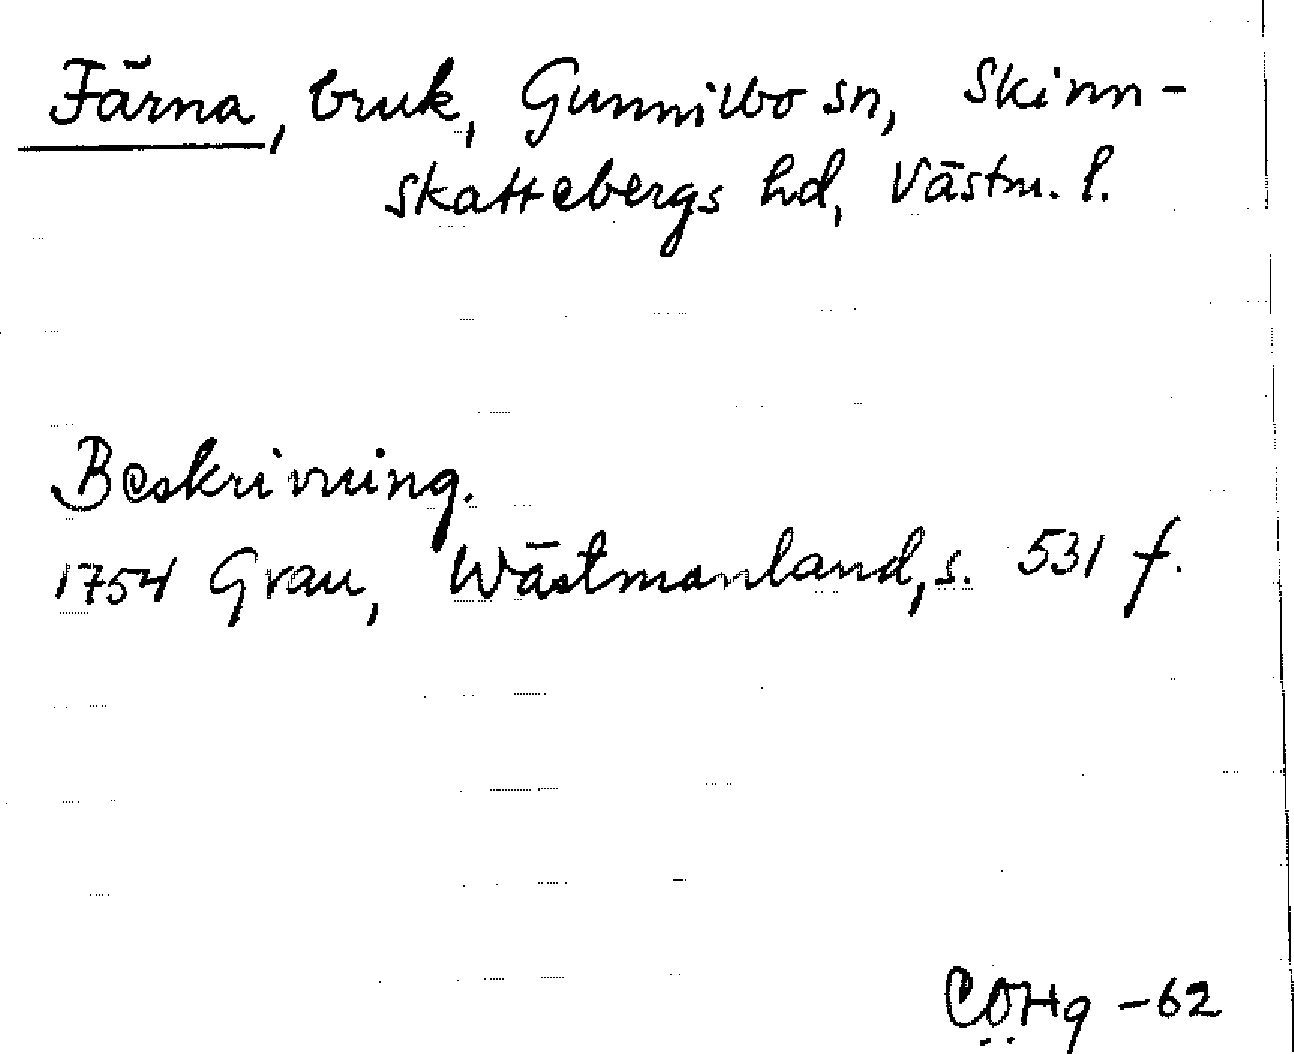 Färna, bruk, Gunnilbo sn, Skinn-
skattebergs hd, Västm. l.
Beskrivning.
1754 Grau, Wästmanland, s. 531 f.
CÖHg -62